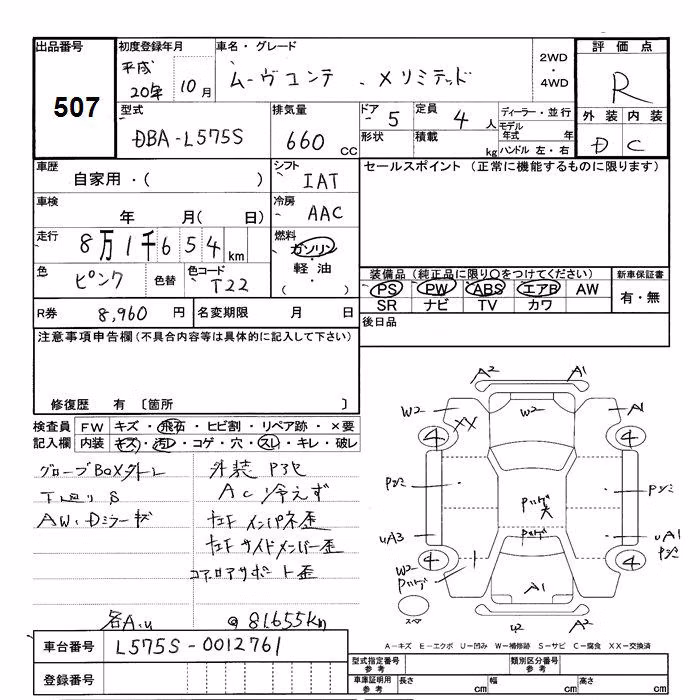 出品番号 初度登録年月 車名・グレード 評価点
507
平成 20年 10月 ムーヴコンテ メリミテッド 2WD・4WD R
型式 排気量 ドア 5 定員 4人 ディーラー・並行 外装 内装
DBA-L575S 660 CC 形状 積載 kg モデル年式 年 ハンドル 左・右 D C
車歴 自家用・( ) シフト IAT セールスポイント (正常に機能するものに限ります)
車検 年 月( 日) 冷房 AAC
走行 8万1千654km 燃料 ガソリン・軽油・( )
色 ピンク 色替 色コード T22 装備品 (純正品に限り○をつけてください) 新車保証書
PS PW ABS エアB AW 有・無
SR ナビ TV カワ
R券 8,960円 名変期限 月 日 後日品
注意事項申告欄 (不具合内容等は具体的に記入して下さい)
修復歴 有 〔箇所 〕
検査員 FW キズ・飛石・ヒビ割・リペア跡・×要
記入欄 内装 キズ・汚レ・コゲ・穴・スレ・キレ・破レ
グローブBOX外レ 外装 P3ヒ
S AC冷えず
AW・Dミラーキズ インパネ歪
サイドメンバー歪
コアロアサポート歪
各A.U @81655km
A2 A1
W2 XX W2 A1
4 4
Pツミ Pツミ
Pハゲ大
uA3 Pハゲ uA1 Pツミ
4 4
W2 Pハゲ A1
スマ W2 A2
A-キズ E-エクボ U-凹み W-補修跡 S-サビ C-腐食 XX-交換済
車台番号 L575S-0012761
登録番号
型式指定番号 参考 類別区分番号 参考
車庫証明用 参考 長さ cm 幅 cm 高さ cm